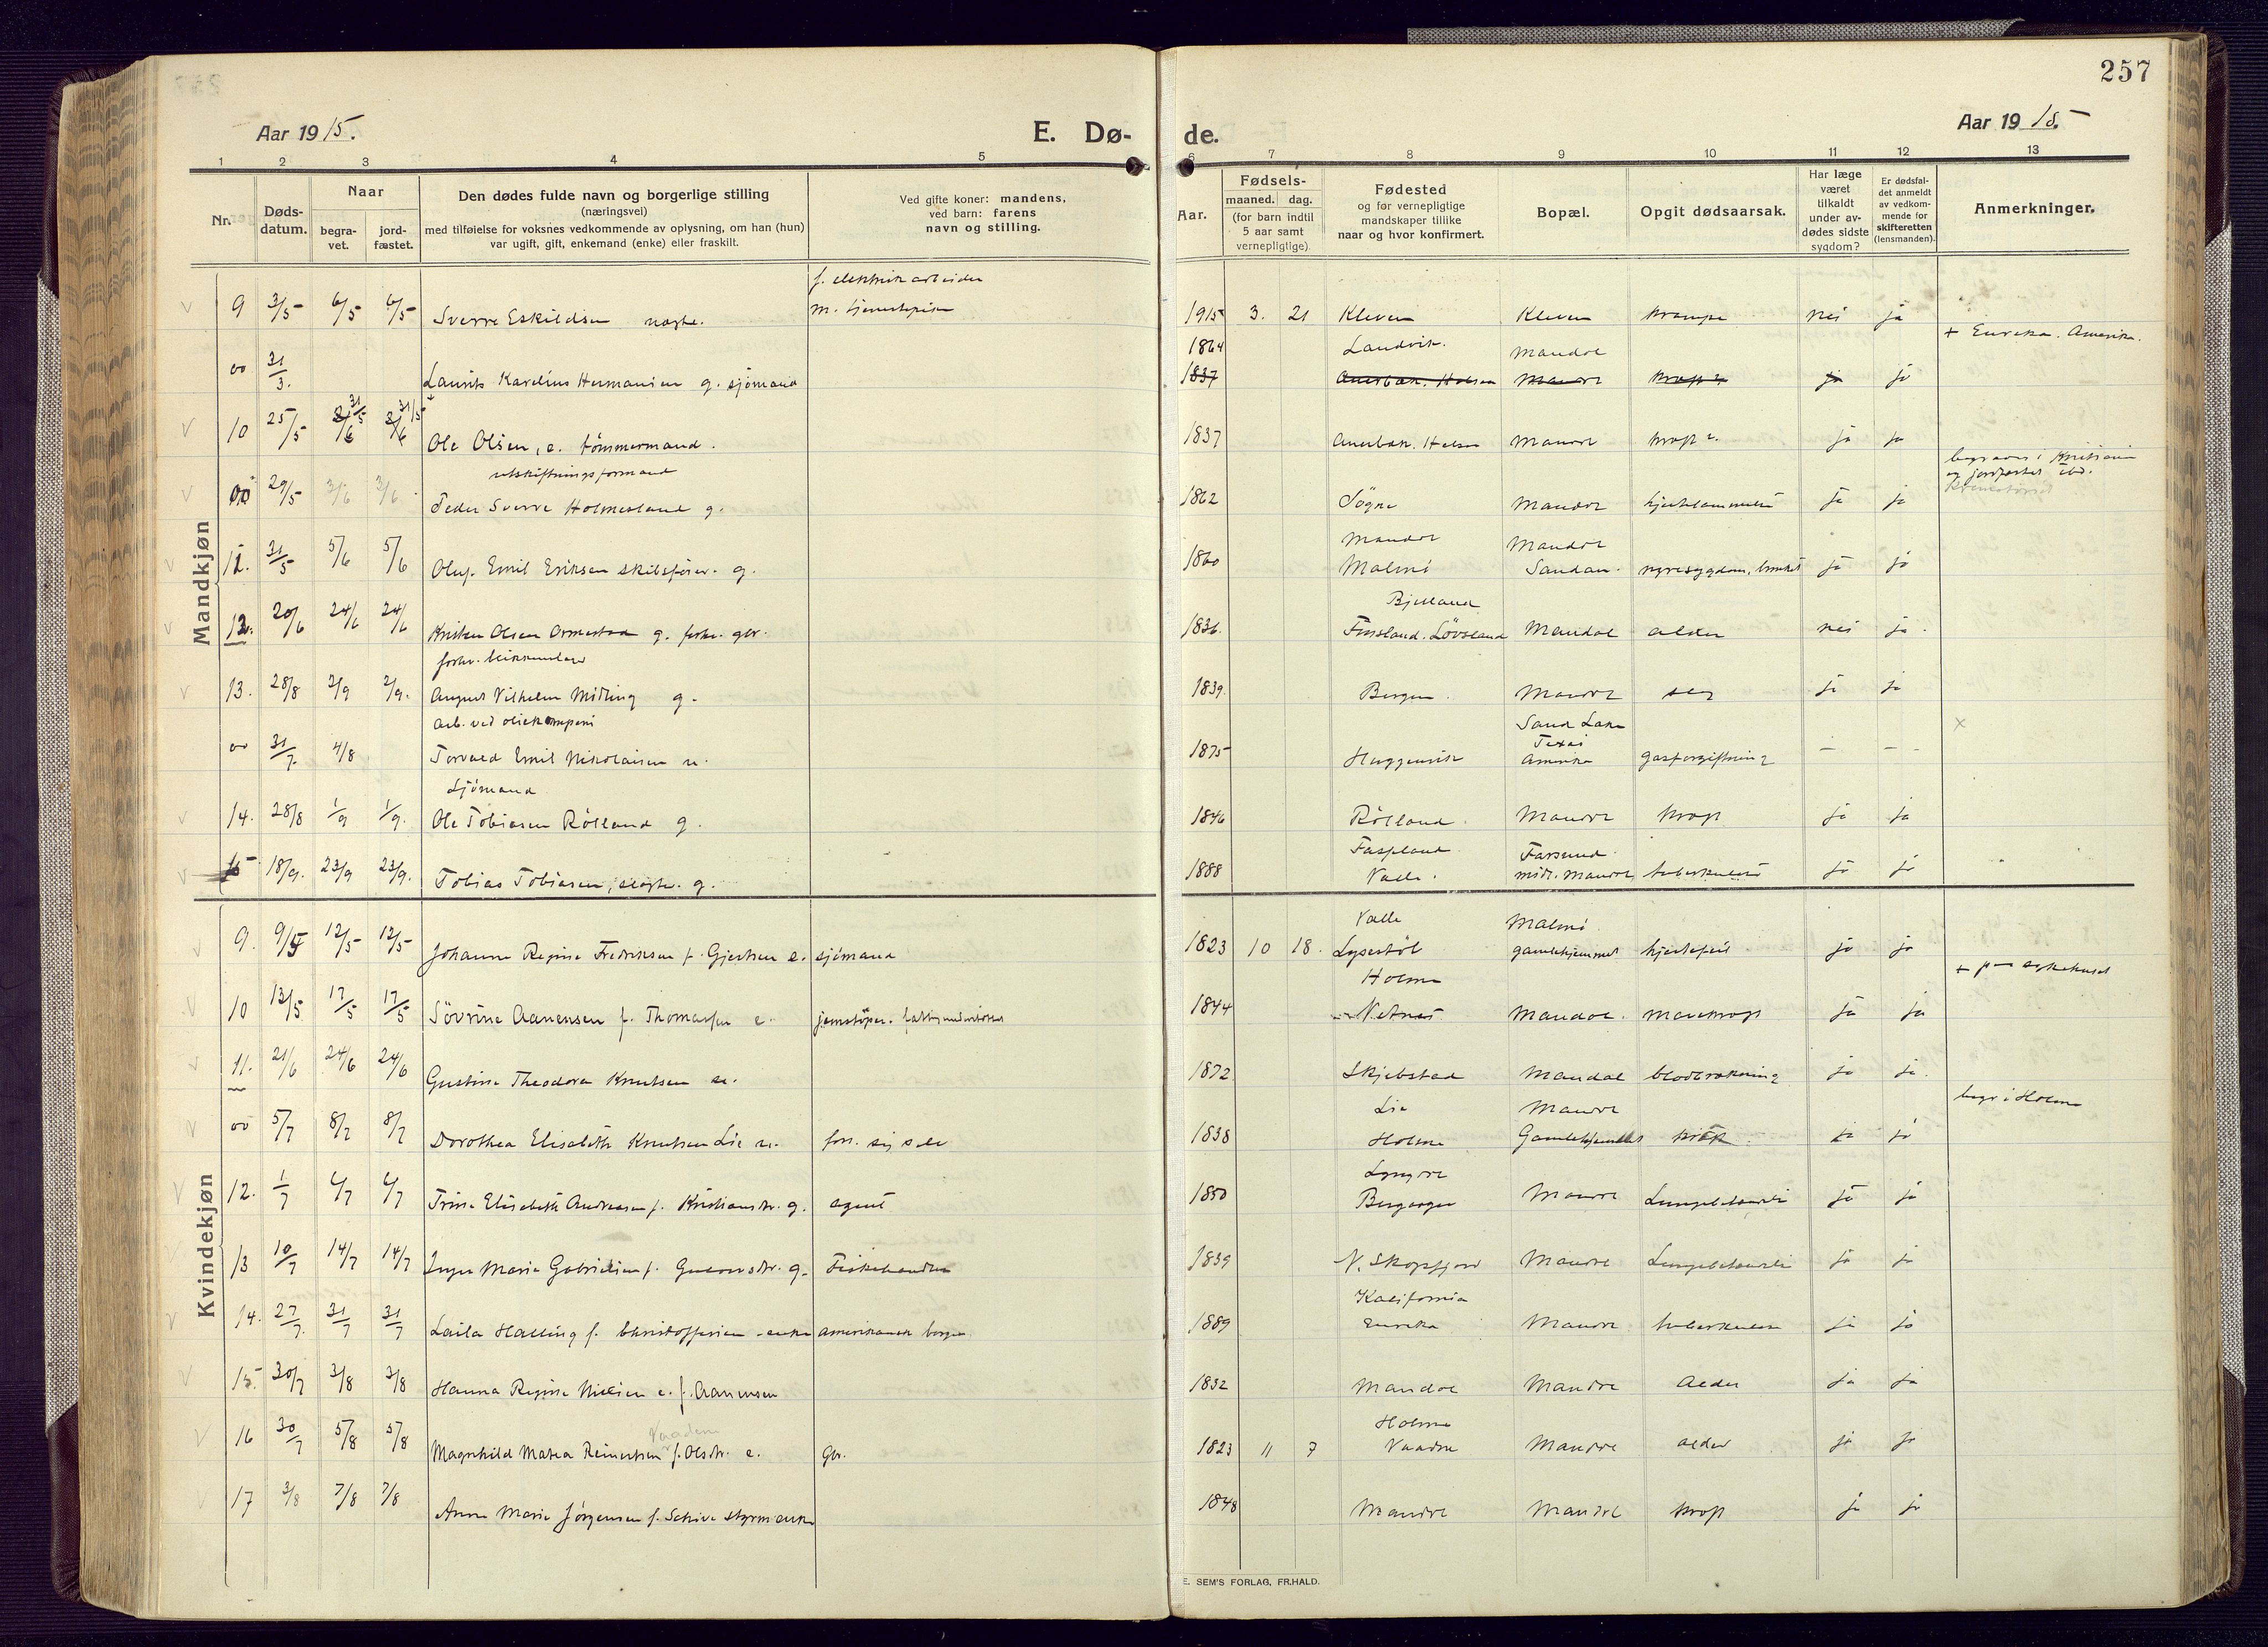 257
Aar 1915.
E. Dø-
de.
Aar 1915.
1 2 3 4 5 6 7 8 9 10 11 12 13
Nr.
Døds-
datum.
Naar
begra-
vet.
jord-
fæstet.
Den dødes fulde navn og borgerlige stilling
(næringsvei)
med tilføielse for voksnes vedkommende av oplysning, om han (hun)
var ugift, gift, enkemand (enke) eller fraskilt.
Ved gifte koner: mandens,
ved barn: farens
navn og stilling.
Aar.
Fødsels-
maaned. dag.
(for barn indtil
5 aar samt
vernepligtige).
Fødested
og før vernepligtige
mandskaper tillike
naar og hvor konfirmert.
Bopæl.
Opgit dødsaarsak.
Har læge
været
tilkaldt
under av-
dødes sidste
sygdom?
Er dødsfal-
det anmeldt
av vedkom-
mende for
skifteretten
(lensmanden).
Anmerkninger.
Mandkjøn
f. elektrik arbeider
9 3/5 6/5 6/5 Sverre Eskildsen m. 1915 3. 21 Kleven Kleven krampe nei ja
+ Eureka. Amerika.
1864 Landvik. Mandal
00 31/3. Laurits Karelius Hermansen g. sjømand 1837 Mandal ja ja
31/5 31/5
10 25/5 2/6 2/6 Ole Olsen, e. tømmermand. 1837 Mandal ja ja
utskiftningsformand
begraves i Kristiania
og jordfæstet ibd.
00 29/5 3/6 3/6 Peder Sverre Holmesland g. 1862 Søgne Mandal hjertelammelse ja ja
Mandal Mandal
12. 31/5 5/6 5/6 Oluf Emil Eriksen g. 1860 Malmø Sandan. nyresygdom, ja ja
Bjelland
12. 20/6 24/6 24/6 Kristen Olsen Ormestad g. forhv. gbr. 1836. Finsland. Løvsland Mandal alder nei ja.
forhv.
13. 28/8 2/9 2/9. August Vilhelm Midling g. 1839. Bergen. Mandal slag ja ja
arb. ved oliekompani
Sand Lake
Texas
00 31/7. 4/8 Torvald Emil Nikolaisen u. 1875 Haggenvik Amerika gasforgiftning — — x
Sjømand
14. 28/8 1/9 1/9. Ole Tobiasen Rølland g. 1846 Rølland. Mandal krop ja ja
Farsund
15 18/9. 23/9 23/9. Tobias Tobiasen, slagter. g. 1888 Valle. midl. Mandal, tuberkulose ja ja
Kvindekjøn
Valle Malmø.
9. 9/5 12/5 12/5 Johanne Regine Fredriksen f. Gjertsen e. sjømand 1823 10 18. Lysestøl gamlehjemmet hjertefeil ja ja
Holme
+ paa sykehuset
10 13/5 17/5 17/5 Søvrine Aanensen f. Thomassen e. jernstøper. fattigunderstøttet 1844 Mandal. mavekrop ja ja
11. 21/6 24/6 24/6 Gustine Theodora Knutsen u. 1872 Skjebstad Mandal blodtrækning ja ja.
Lie Mandal
begr i Holme
00 5/7 8/7 8/7 Dorothea Elisabeth Knutsen Lie u. fors. sig selv 1838 Holme Gamlehjemmet ja ja
Lyngdal
12. 1/7 6/7 6/7 Trine Elisabeth Andreasen f. Kristiansdr. g. agent 1850 Bergsager Mandal Lungebetændelse ja ja
13 10/7 14/7 14/7 Inger Marie Gabrielsen f. Gunvorsdr. g. Fiskehandler 1839 N. Skogsfjord Mandal Lungebetændelse ja ja
Kalifornia
14. 27/7. 31/7 31/7 Laila Halling f. Christoffersen - enke amerikansk borger 1889 Eureka Mandal tuberkulose ja ja
15. 30/7 3/8 3/8 Hanna Regine Nielsen e. f. Aanensen 1832 Mandal Mandal Alder ja ja
Vaadne
Holme
16 30/7 5/8 5/8 Magnhild Matea Reinertsen f. Olsdtr. e. Gbr. 1823 11 7 Vaadne Mandal alder ja ja
17 3/8 7/8 7/8 Anne Marie Jørgensen f. Schive styrm enke 1848 Mandal Mandal krop ja ja
E. SEM'S FORLAG, FR.HALD.